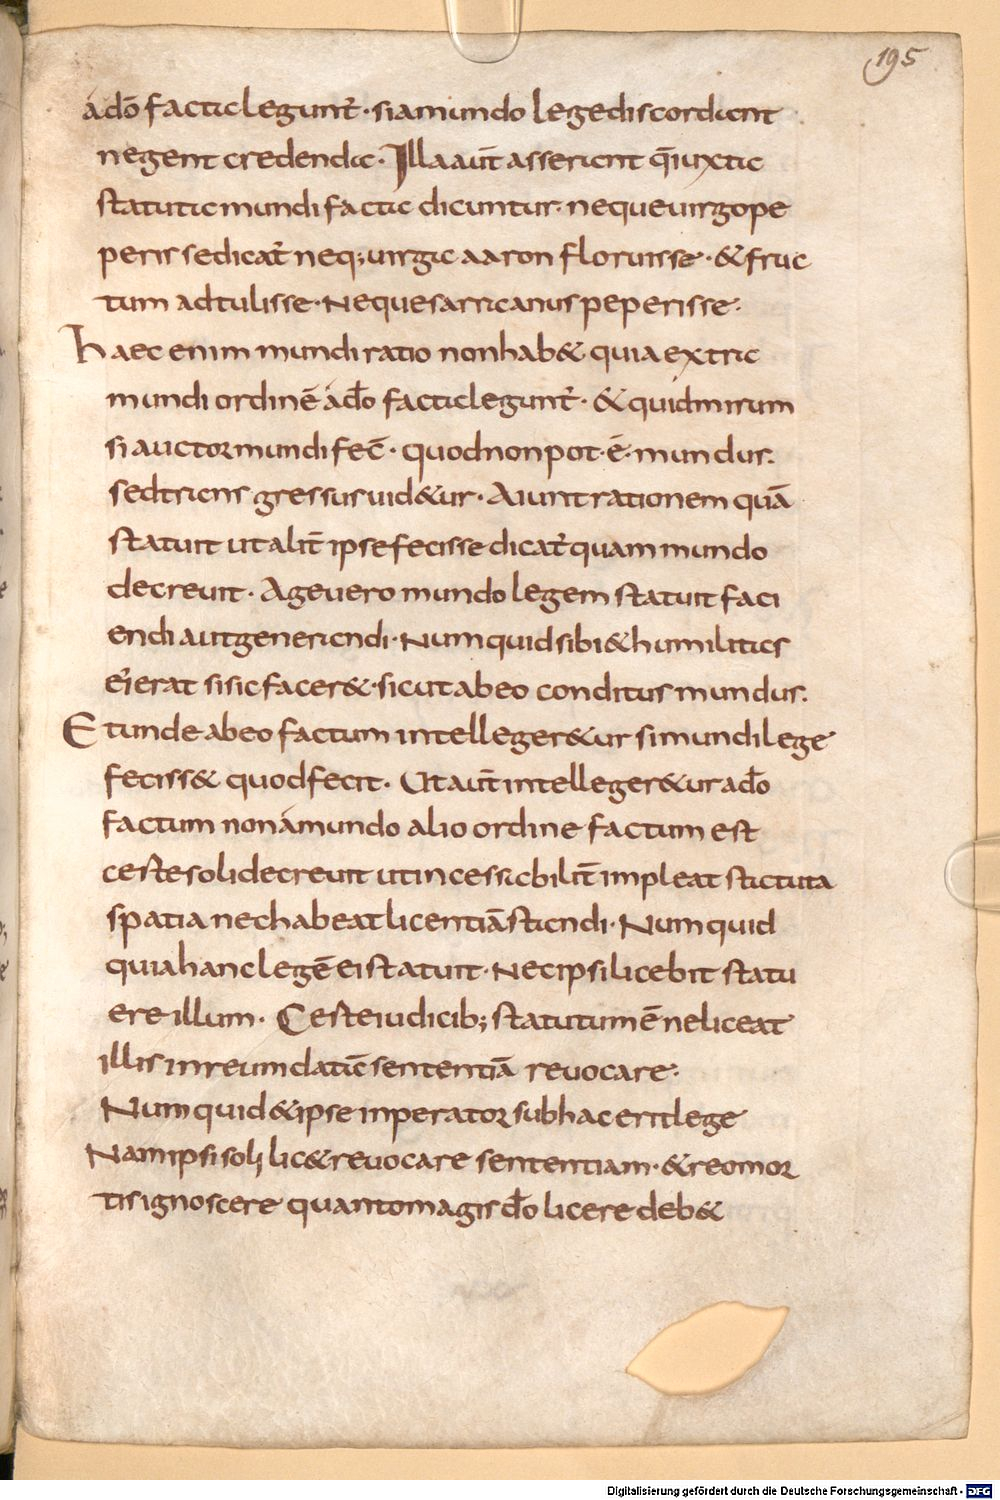 195
a dō facta legunt̄ · si a mundo lege discordant
negent credenda · Illa aūt asserant q̄ iuxta
statuta mundi facta dicuntur · neque uirgo pe
perisse dicat̄ neq; uirga aaron floruisse · & fruc
tum adtulisse · Neque sarra anus peperisse ·
Haec enim mundi ratio non hab& quia extra
mundi ordinē a dō facta legunt̄ · & quid mirum
si auctor mundi fec̄ · quod non pot ē · mundus ·
sed trans gressus uid&ur · Aiunt rationem quā
statuit ut alit̄ ipse fecisse dicat̄ quam mundo
decreuit · Age uero mundo legem statuit faci
endi aut generandi · Numquid sibi & humilitas
ei erat si sic facer& · sicut ab eo conditus mundus ·
Et unde ab eo factum intelleger&ur si mundi lege
feciss& quod fecit · Ut aūt intelleger&ur a dō
factum non a mundo alio ordine factum est
Certe soli decreuit ut incessabilit̄ impleat statuta
spatia nec habeat licentiā standi · Numquid
quia hanc legē ei statuit · Nec ipsi licebit statu
ere illum · Certe iudicib; statutum ē ne liceat
illis in reum datā sententiā reuocare ·
Numquid & ipse inperator sub hac erit lege
Nam ipsi soli lic& reuocare sententiam · & reo mor
tis ignoscere quanto magis dō licere deb&
Digitalisierung gefördert durch die Deutsche Forschungsgemeinschaft - DFG